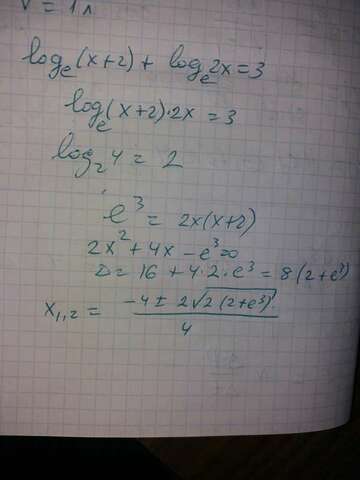 V = 1л
log_e(x+2) + log_e 2x = 3
log_e(x+2)·2x = 3
log_2 4 = 2
e^3 = 2x(x+2)
2x^2 + 4x - e^3 = 0
D = 16 + 4·2·e^3 = 8(2+e^3)
x_1,2 = (-4 ± 2√(2(2+e^3)))/4